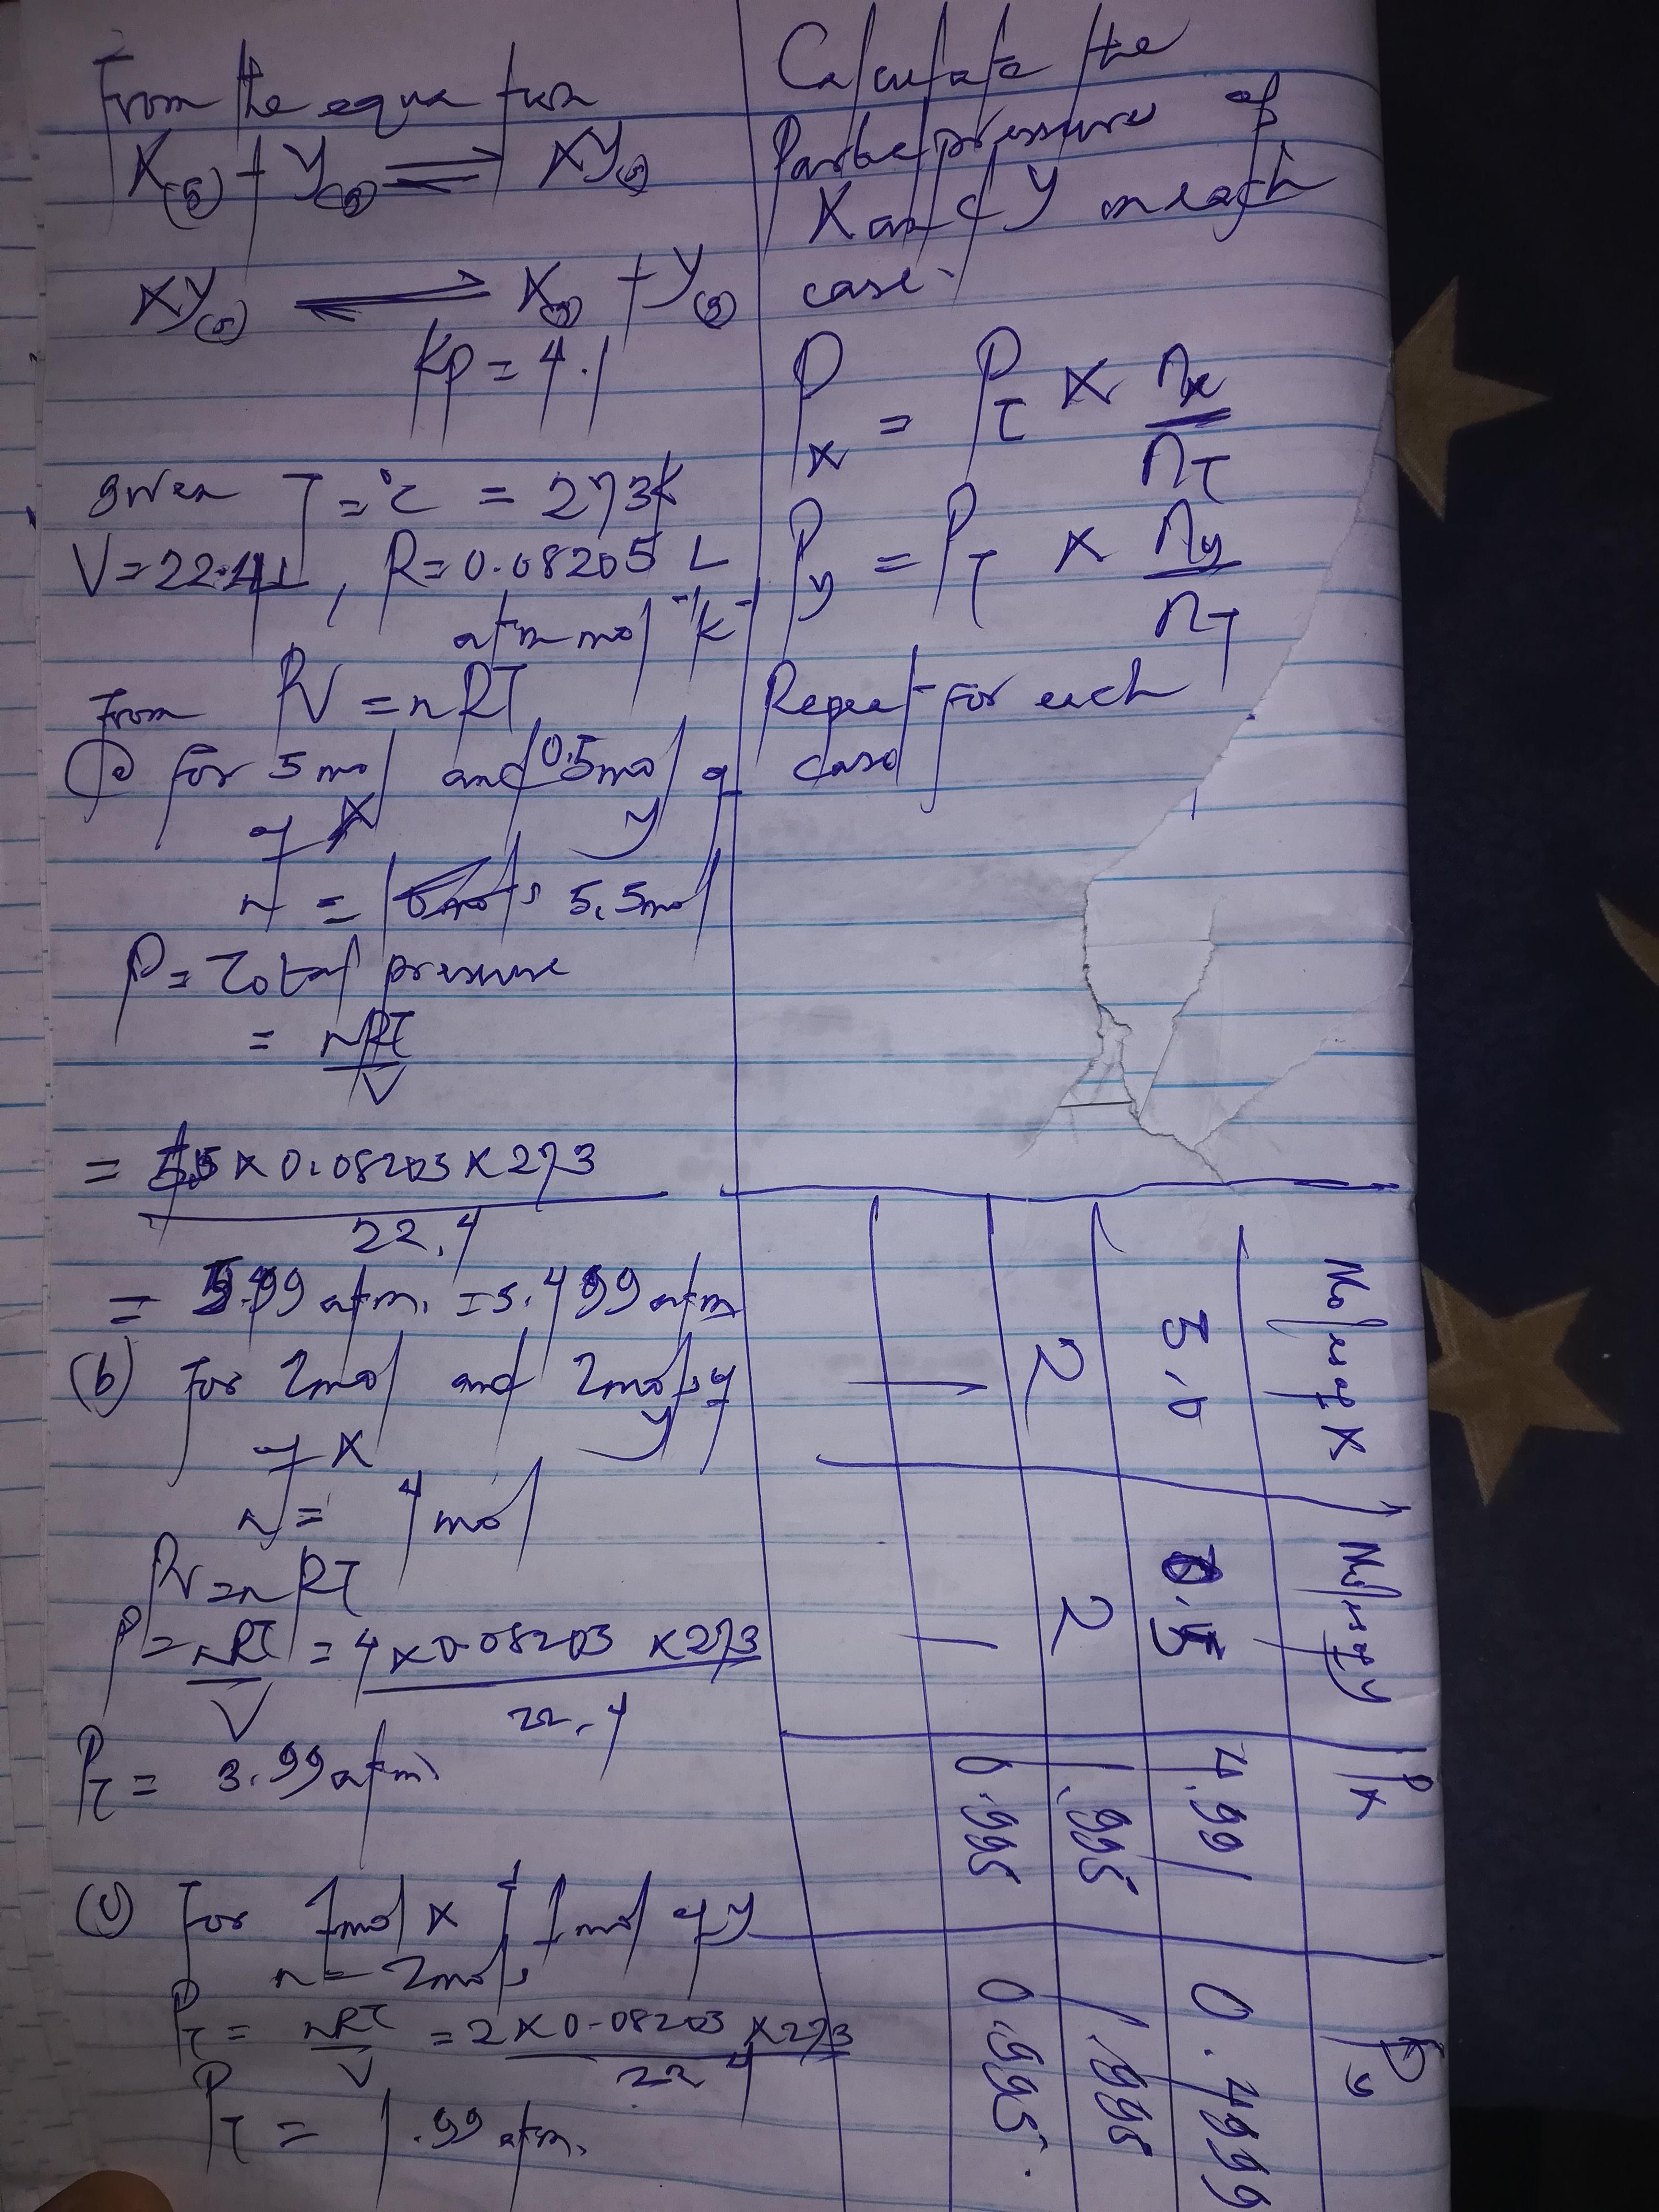 From the equation
X(s) + Y(s) ⇌ XY(s)
XY(s) ⇌ X(s) + Y(s)
Kp = 4.1
given T = °C = 273K
V = 22.4L, R = 0.08205 L
atm mol⁻¹ K⁻
From PV = nRT
for 5 mol and 0.5 mol of
of X y
n = 5.5 mol
P = Total pressure
= nRT/V
= 5.5 x 0.08205 x 273
22.4
= 5.499 atm. = 5.499 atm
(b) For 2mol and 2mol of
of X y
n = 4 mol
PV = nRT
P = nRT/V = 4 x 0.08205 x 273
22.4
P_T = 3.99 atm
(c) For 1mol X & 1mol of y
n = 2mols
P_T = nRT/V = 2 x 0.08205 x 273
22.4
P_T = 1.99 atm.
Calculate the
pressure of
X and Y in each
case.
P_X = P_T x n_x/n_T
P_y = P_T x n_y/n_T
Repeat for each
case
Moles of X Moles of y P_X P_y
5.0 0.5 4.991 0.4999
2 2 1.995 1.995
1 1 0.995 0.995